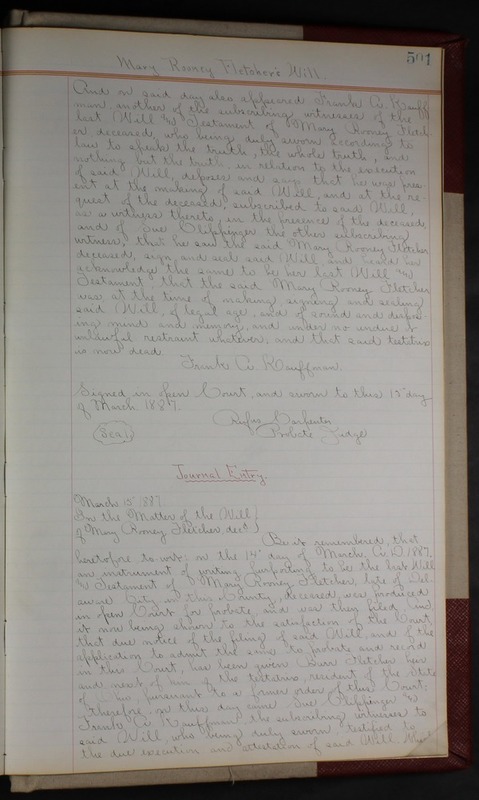 501
Mary Rooney Fletcher's Will.
And on said day also appeared Frank A. Kauff
man, another of the subscribing witnesses of the
last Will & Testament of Mary Rooney Fletch
er deceased, who being duly sworn according to
law to speak the truth, the whole truth, and
nothing but the truth in relation to the execution
of said Will, deposes and says that he was pres-
ent at the making of said Will, and at the re-
quest of the deceased, subscribed to said Will,
as a witness thereto, in the presence of the deceased,
and of Sue Clippinger the other subscribing
witness, that he saw the said Mary Rooney Fletcher
deceased, sign and seal said Will and heard her
acknowledge the same to be her last Will &
Testament that the said Mary Rooney Fletcher
was, at the time of making, signing and sealing
said Will, of legal age, and of sound and dispos-
ing mind and memory, and under no undue or
unlawful restraint whatever, and that said testatrix
is now dead.
Frank A. Kauffman.
Signed in open Court, and sworn to this 15" day
of March 1887.
Rufus Carpenter
(Seal)
Probate Judge
Journal Entry.
March 15" 1887
In the Matter of the Will
of Mary Rooney Fletcher, decd.
Be it remembered, that
heretofore to-wit: on the 14" day of March, A.D. 1887,
an instrument of writing purporting to be the last Will
& Testament of Mary Rooney Fletcher, late of Del-
aware City in this County, deceased, was produced
in open Court for probate, and was then filed, and
it now being shown to the satisfaction of the Court,
that due notice of the filing of said Will, and of the
application to admit the same to probate and record
in this Court, has been given Burr Fletcher heir
and next of kin of the testatrix, resident of the State
of Ohio, pursuant to a former order of this Court;
therefore on this day came Sue Clippinger &
Frank A. Kauffman the subscribing witnesses to
said Will, who being duly sworn testified to
the due execution and attestation of said Will, which